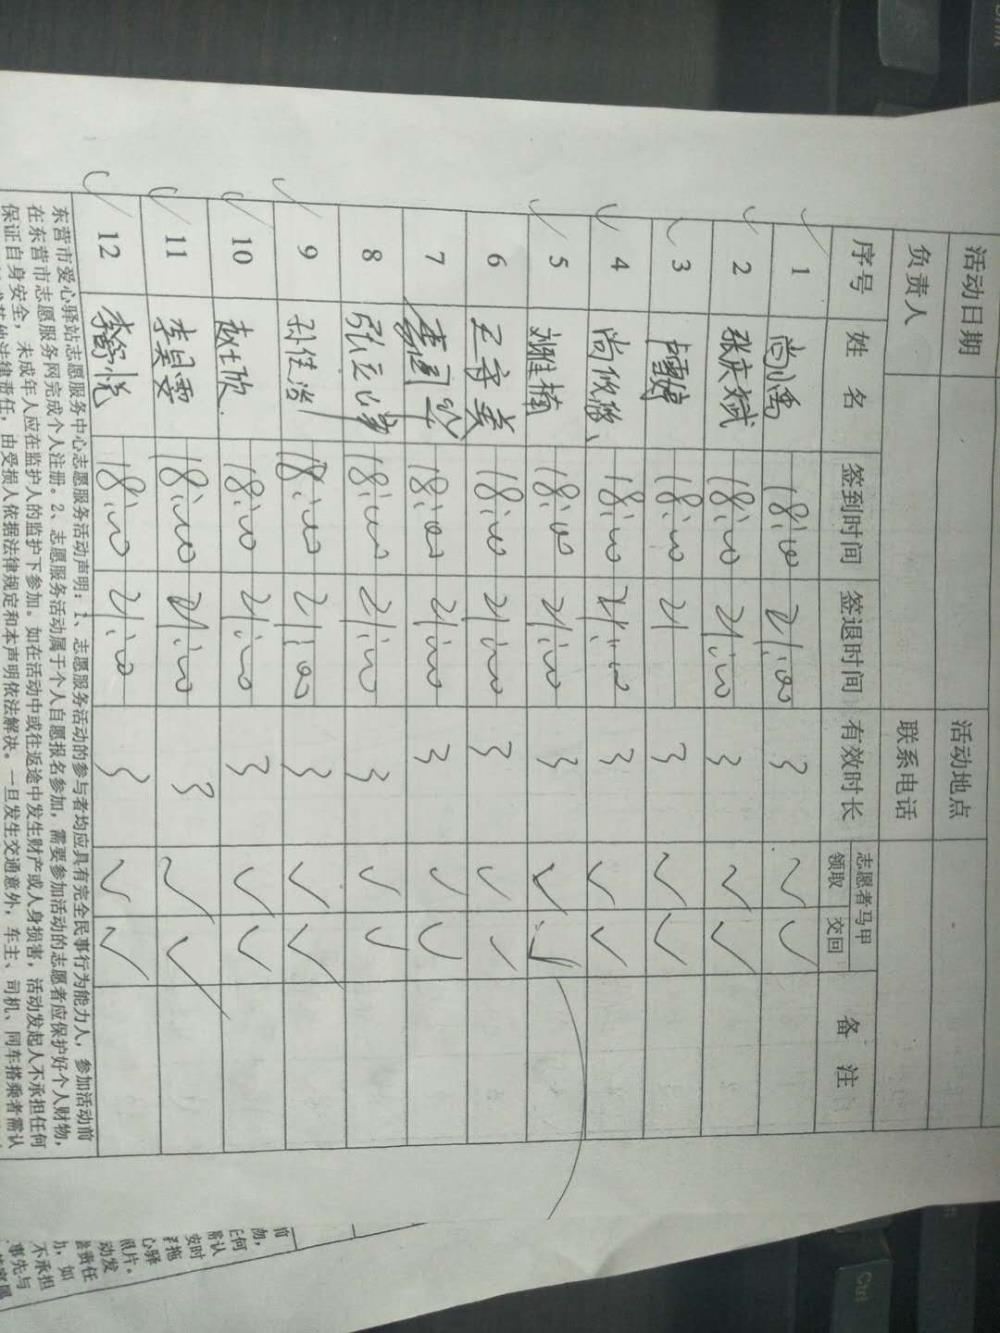 活动日期 活动地点
负责人 联系电话
序号 姓名 签到时间 签退时间 有效时长 志愿者马甲 备注
领取 交回
1 尚禹 18:00 21:00 3 ✓ ✓
2 张庆斌 18:00 21:00 3 ✓ ✓
3 18:00 21 3 ✓ ✓
4 尚俊 18:00 21:00 3 ✓ ✓
5 刘雅楠 18:00 21:00 3 ✓ ✓
6 王 18:00 21:00 3 ✓ ✓
7 李 18:00 21:00 3 ✓ ✓
8 张 18:00 21:00 3 ✓ ✓
9 孙佳浩 18:00 21:00 3 ✓ ✓
10 赵欣 18:00 21:00 3 ✓ ✓
11 李昊雯 18:00 21:00 3 ✓ ✓
12 李舒悦 18:00 21:00 3 ✓ ✓
东营市爱心驿站志愿服务中心志愿服务活动声明：1、志愿服务活动的参与者均应具有完全民事行为能力人，参加活动前
在东营市志愿服务网完成个人注册。2、志愿服务活动属于个人自愿报名参加，需要参加活动的志愿者应保护好个人财物，
保证自身安全，未成年人应在监护人的监护下参加。如在活动中或往返途中发生财产或人身损害，活动发起人不承担任何
其他法律责任，由受损人依据法律规定和本声明依法解决。一旦发生交通意外，车主、司机、同车搭乘者需认
前
物，
任何
需认
安时
心驿
照片。
动发
责任
如
不承担
事先与
Ctrl